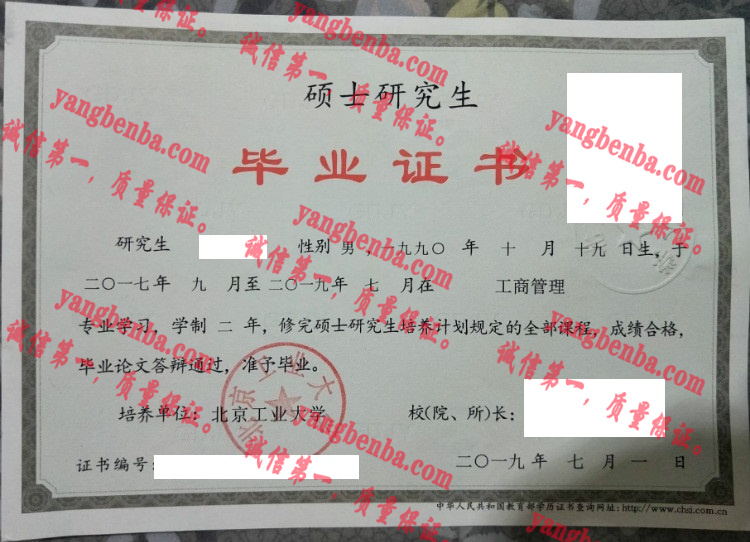 硕士研究生
毕业证书
研究生 性别 男 ，一九九〇 年 十 月 十九 日生，于
二〇一七年 九 月至 二〇一九年 七 月在 工商管理
专业学习，学制 二 年，修完硕士研究生培养计划规定的全部课程，成绩合格，
毕业论文答辩通过，准予毕业。
培养单位：北京工业大学 校(院、所)长：
证书编号：
二〇一九年 七 月 一 日
中华人民共和国教育部学历证书查询网址：http://www.chsi.com.cn
北京工业大学
yangbenba.com
诚信第一，质量保证。
yangbenba.com
诚信第一，质量保证。
yangbenba.com
诚信第一，质量保证。
yangbenba.com
诚信第一，质量保证。
yangbenba.com
诚信第一，质量保证。
yangbenba.com
诚信第一，质量保证。
yangbenba.com
诚信第一，质量保证。
yangbenba.com
诚信第一，质量保证。
yangbenba.com